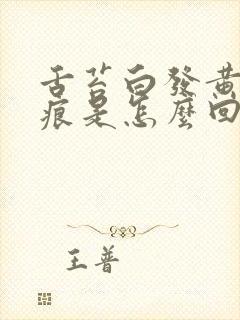 舌苔白發黃
痕是怎麼回
王普